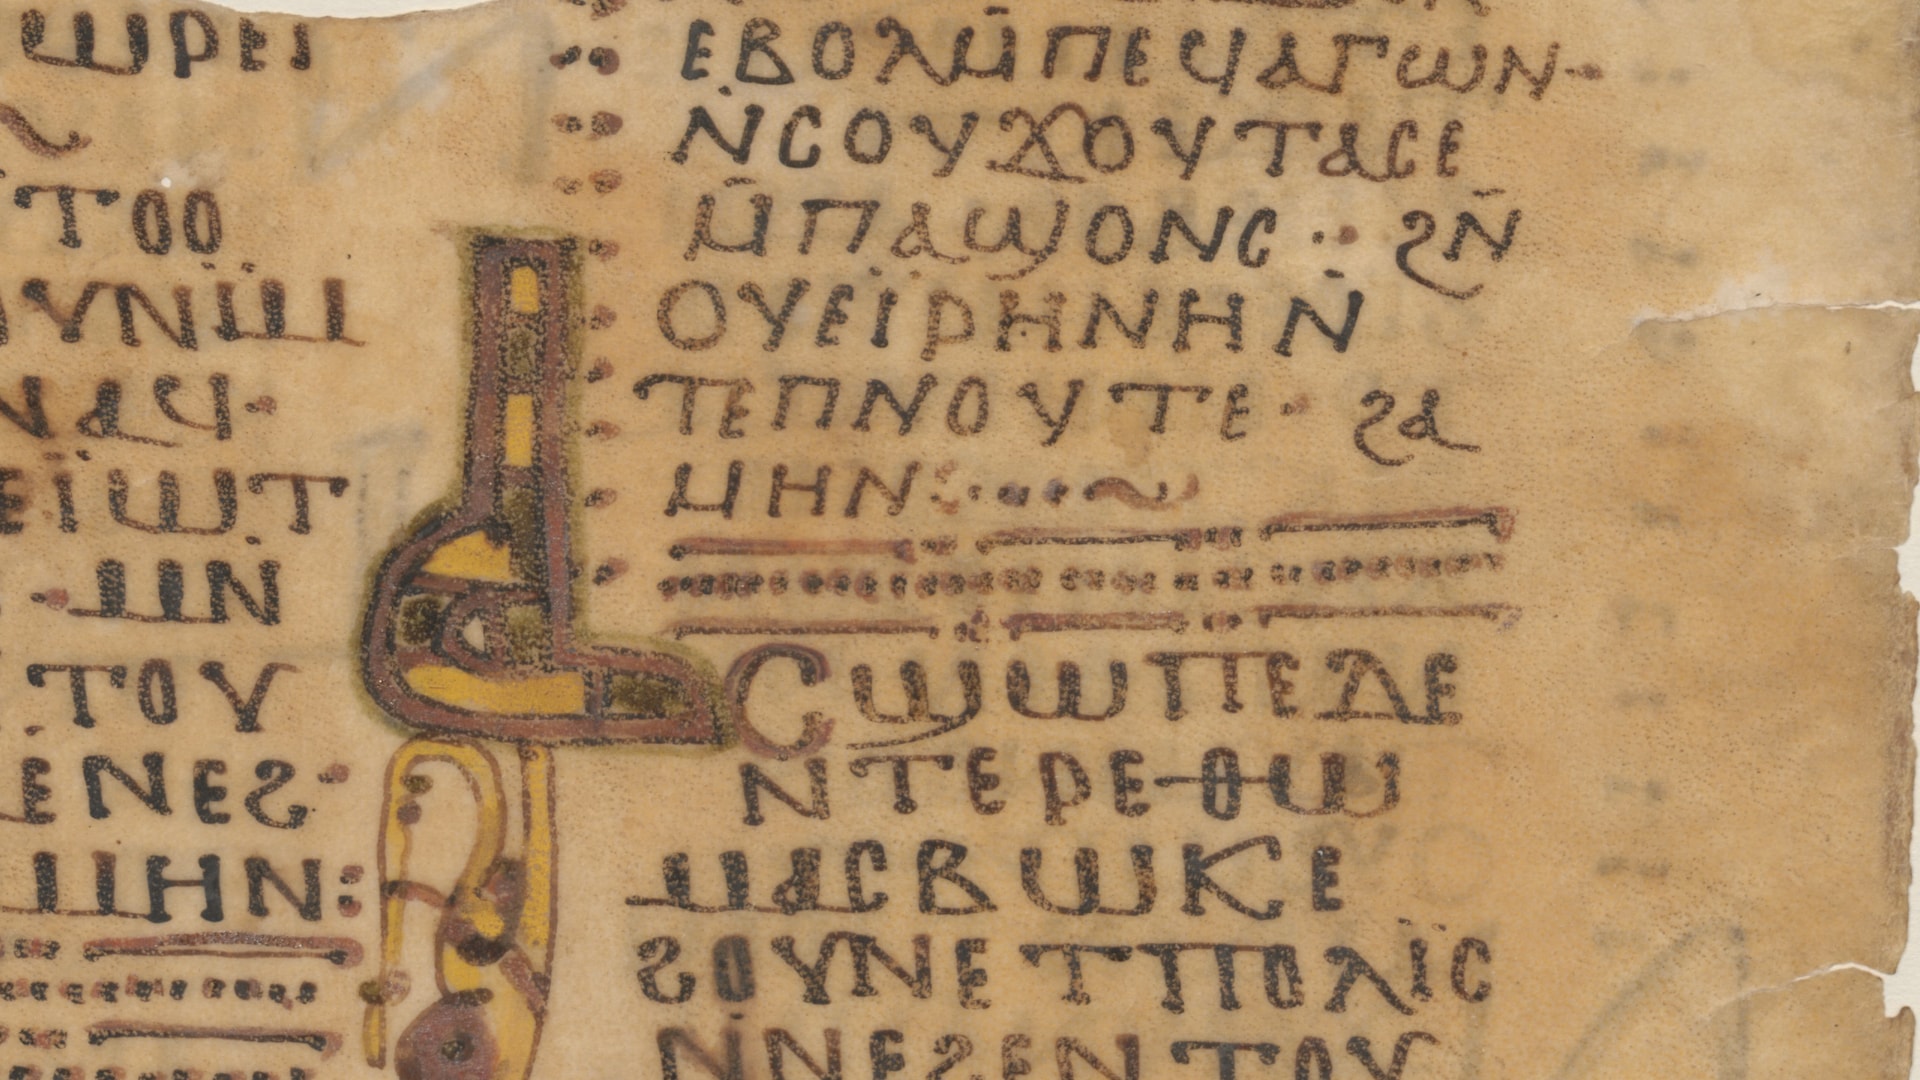 ϣⲱⲣⲡ
ⲧⲟⲟ
ⲉⲓⲱⲧ
ⲙⲛ
ⲧⲟⲩ
ⲉⲛⲉϩ·
ⲙⲏⲛ:
ⲉⲃⲟⲗⲙ̄ⲡⲉϥⲁⲅⲱⲛ·
ⲛ̇ⲥⲟⲩϫⲟⲩⲧⲁⲥⲉ
ⲙ̄ⲡⲁϣⲟⲛⲥ : ϩⲛ̄
ⲟⲩⲉⲓ̈ⲣⲏⲛⲏ ⲛ̇
ⲧⲉⲡⲛⲟⲩⲧⲉ· ϩⲁ
ⲙⲏⲛ:
ⲥϣⲱⲡⲉⲇⲉ
ⲛⲧⲉⲣⲉⲑⲱ
ⲙⲁⲥⲃⲱⲕⲉ
ϩⲟⲩⲛⲉⲧⲡⲟⲗⲓ̈ⲥ
ⲛ̇ⲛⲉϩⲉⲛⲧⲟⲩ